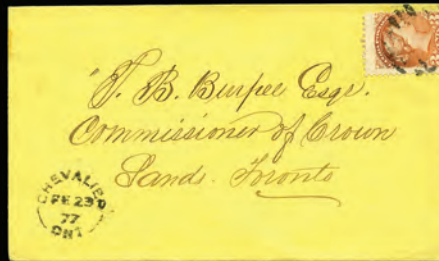 T. B. Burpee Esqr.
Commissioner of Crown
Lands. Toronto
CHEVALIER
FE 23
77
ONT